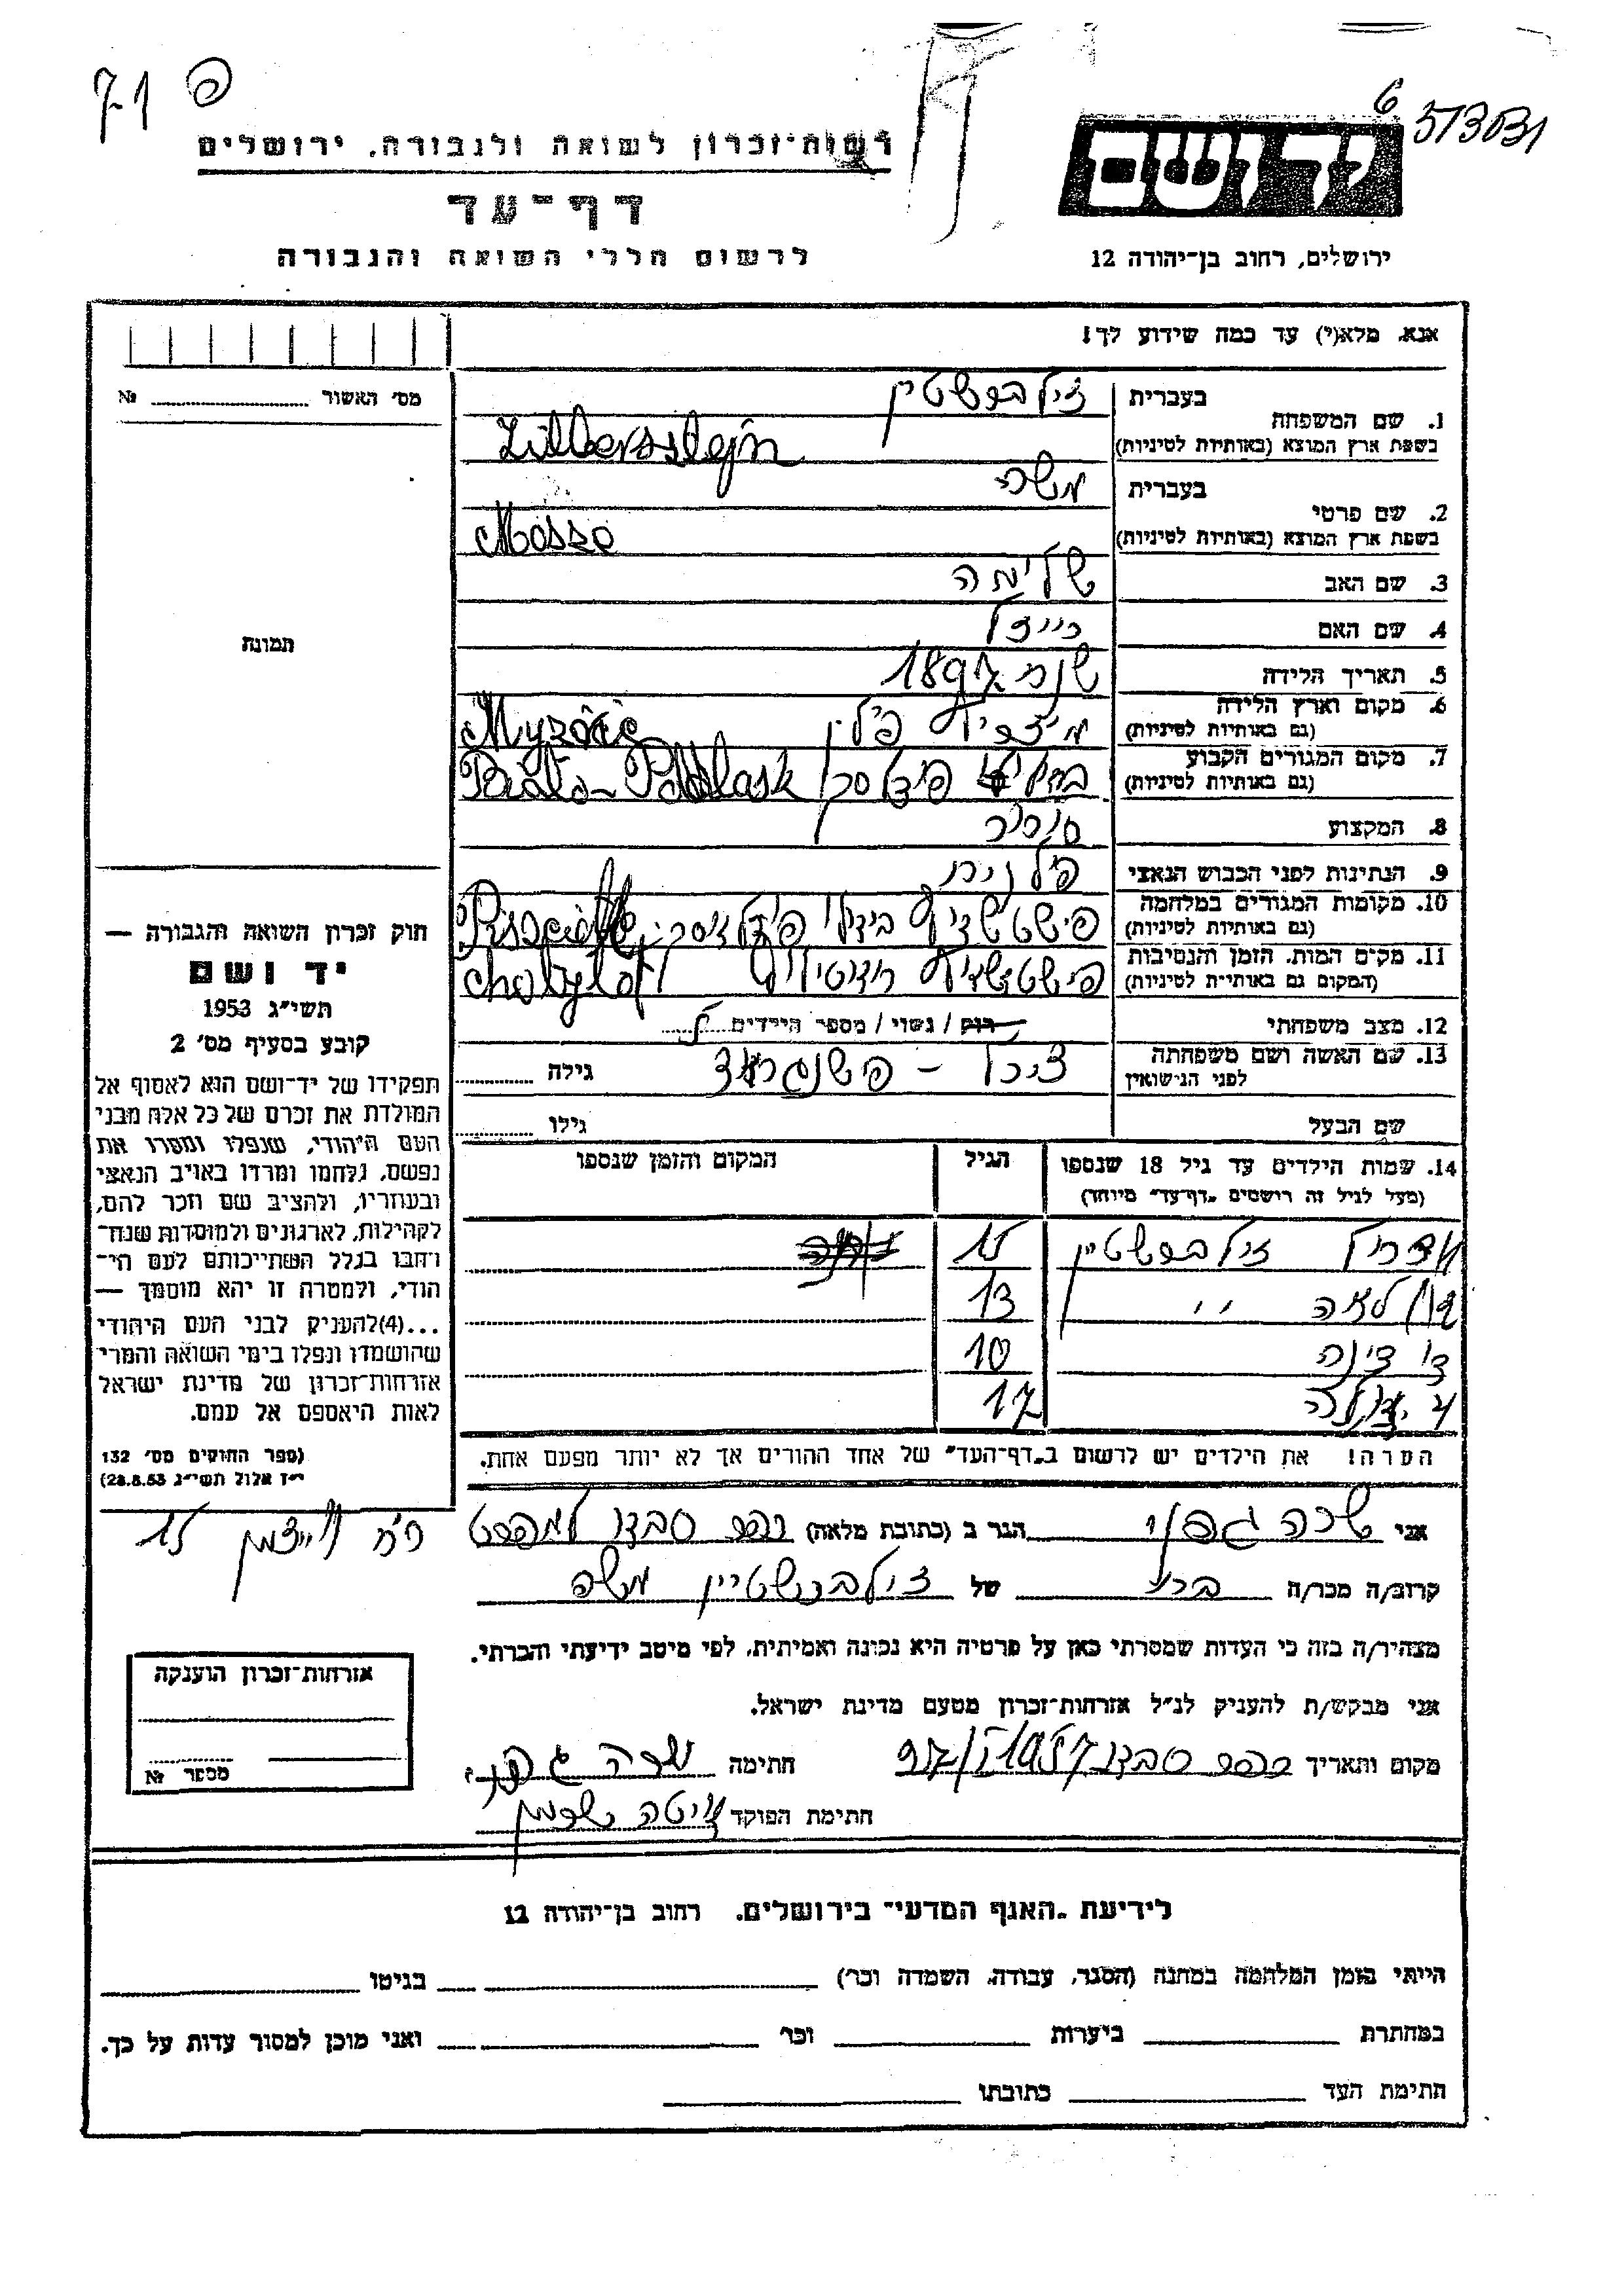 71 פ
573031
6
רשות־זכרון לשואה ולגבורה, ירושלים
יד ושם
דף־עד
לרשום חללי השואה והגבורה
ירושלים, רחוב בן־יהודה 12
אנא, מלא(י) עד כמה שידוע לך!
מס׳ האשור № 
1. שם המשפחה בעברית זילברשטין
בשפת ארץ המוצא (באותיות לטיניות) Zilbersztejn
2. שם פרטי בעברית משה
בשפת ארץ המוצא (באותיות לטיניות) Mosze
3. שם האב שלימה
4. שם האם רייזל
5. תאריך הלידה שנת 1897
6. מקום וארץ הלידה
(גם באותיות לטיניות)
7. מקום המגורים הקבוע Biała-Podlask
(גם באותיות לטיניות)
8. המקצוע סוחר
9. הנתינות לפני הכבוש הנאצי פולנית
10. מקומות המגורים במלחמה
(גם באותיות לטיניות)
11. מקום המות, הזמן והנסיבות
(המקום גם באותיות לטיניות)
12. מצב משפחתי רוק / נשוי / מספר הילדים
13. שם האשה ושם משפחתה
לפני הנישואין
גילה
שם הבעל
גילו
תמונה
חוק זכרון השואה והגבורה —
יד ושם
תשי״ג 1953
קובע בסעיף מס׳ 2
תפקידו של יד־ושם הוא לאסוף אל
המולדת את זכרם של כל אלה מבני
העם היהודי, שנפלו ומסרו את
נפשם, נלחמו ומרדו באויב הנאצי
ובעוזריו, ולהציב שם וזכר להם,
לקהילות, לארגונים ולמוסדות שנח־
רחבו בגלל השתייכותם לעם הי־
הודי, ולמטרה זו יהא מוסמך —
...(4)להעניק לבני העם היהודי
שהושמדו ונפלו בימי השואה והמרי
אזרחות־זכרון של מדינת ישראל
לאות היאספם אל עמם.
(ספר החוקים מס׳ 132
י״ז אלול תשי״ג 28.8.53)
14. שמות הילדים עד גיל 18 שנספו הגיל המקום והזמן שנספו
(מעל לגיל זה רושמים „דף־עד״ מיוחד)
זילברשטין 15
לאה ,, 13
דינה 10
17
הערה! את הילדים יש לרשום ב„דף־העד״ של אחד ההורים אך לא יותר מפעם אחת.
אני שרה גפני הגר ב (כתובת מלאה)
רח׳ וייצמן 15
קרוב/ה מכר/ה של זילברשטיין משה
מצהיר/ה בזה כי העדות שמסרתי כאן על פרטיה היא נכונה ואמיתית, לפי מיטב ידיעתי והכרתי.
אני מבקש/ת להעניק לנ״ל אזרחות־זכרון מטעם מדינת ישראל.
מקום ותאריך חתימה שרה גפני
חתימת הפוקד
אזרחות־זכרון הוענקה
מספר №
לידיעת „האגף המדעי״ בירושלים, רחוב בן־יהודה 12
הייתי בזמן המלחמה במחנה (הסגר, עבודה, השמדה וכר׳) בגיטו
במחתרת ביערות וכר׳ ואני מוכן למסור עדות על כך.
חתימת העד כתובתו